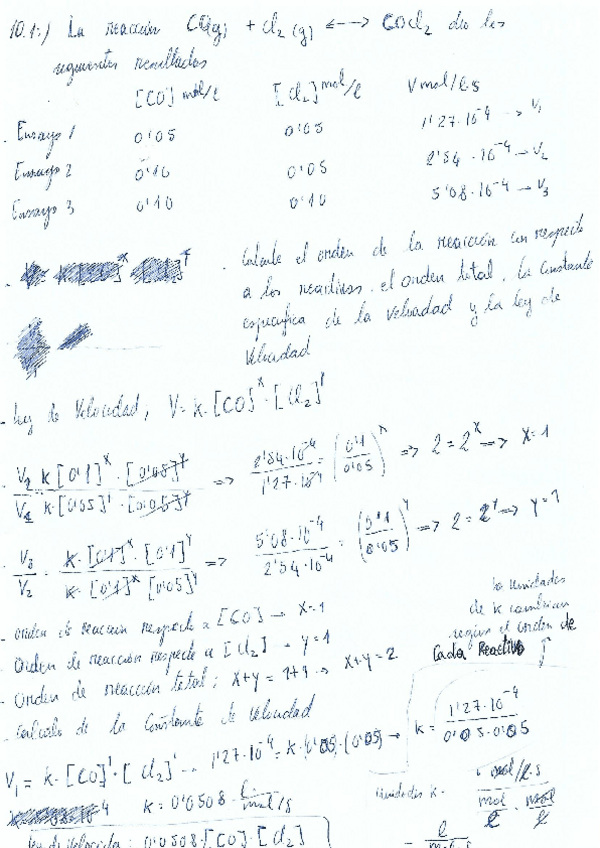 10.1:) La reacción CO(g) + Cl2 (g) <--> COCl2 dio los
siguientes resultados
[CO] mol/l [Cl2] mol/l V mol/l.s
- Ensayo 1 0'05 0'05 1'27·10^-4 -> V1
Ensayo 2 0'10 0'05 2'54·10^-4 -> V2
Ensayo 3 0'10 0'10 5'08·10^-4 -> V3
- Calcule el orden de la reacción con respecto
a los reactivos, el orden total, la constante
específica de la velocidad y la ley de
Velocidad
- Ley de Velocidad; V=k·[CO]^x·[Cl2]^y
V2/V1 k[0'1]^x·[0'05]^y / k·[0'05]^x·[0'05]^y => 2'54·10^-4/1'27·10^-4 = (0'1/0'05)^x => 2=2^x => x=1
- V3/V2 = k·[0'1]^x·[0'1]^y / k·[0'1]^x [0'05]^y => 5'08·10^-4/2'54·10^-4 = (0'1/0'05)^y => 2=2^y => y=1
- orden de reacción respecto a [CO] -> x=1
- Orden de reacción respecto a [Cl2] - y=1
- Orden de reacción total; x+y=1+1 -> x+y=2
- Calculo de la Constante de Velocidad
las unidades
de k cambian
según el orden de
Cada Reactivo
V1 = k·[CO]'·[Cl2]' 1'27·10^-4 = k·(0'05)·(0'05) -> k= 1'27·10^-4/0'05·0'05
k= 0'0508 l/mol/s
unidades k = mol/l.s / mol/l · mol/l
ley de Velocidad: 0'0508·[CO]·[Cl2]
= l/mol·s